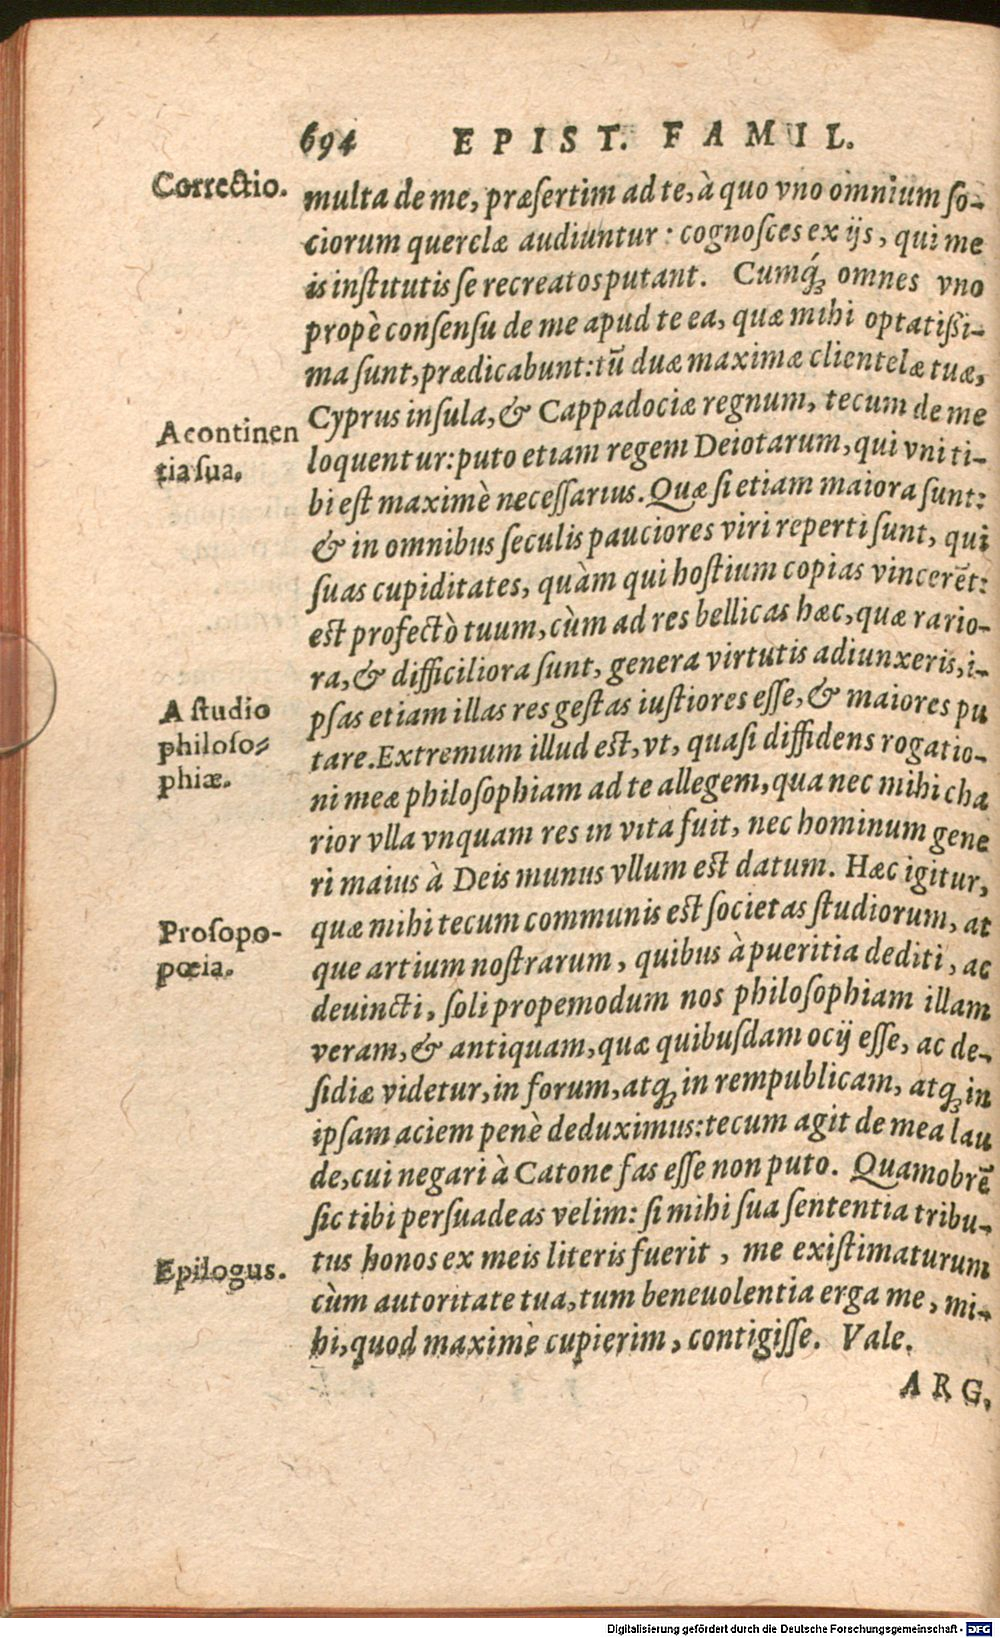 694 EPIST. FAMIL.
Correctio.
multa de me, præsertim ad te, à quo vno omnium so-
ciorum querelæ audiuntur: cognosces ex ijs, qui me
is institutis se recreatos putant. Cumq́ꝫ omnes vno
propè consensu de me apud te ea, quæ mihi optatißi-
ma sunt, prædicabunt: tū duæ maximæ clientelæ tuæ,
Cyprus insula, & Cappadociæ regnum, tecum de me
A continen
tia sua.
loquentur: puto etiam regem Deiotarum, qui vni ti-
bi est maximè necessarius. Quæ si etiam maiora sunt:
& in omnibus seculis pauciores viri reperti sunt, qui
suas cupiditates, quàm qui hostium copias vincerēt:
est profectò tuum, cùm ad res bellicas hæc, quæ rario-
ra, & difficiliora sunt, genera virtutis adiunxeris, i-
A studio
philoso-
phiæ.
psas etiam illas res gestas iustiores esse, & maiores pu
tare. Extremum illud est, vt, quasi diffidens rogatio-
ni meæ philosophiam ad te allegem, qua nec mihi cha
rior vlla vnquam res in vita fuit, nec hominum gene
ri maius à Deis munus vllum est datum. Hæc igitur,
Prosopo-
pœia.
quæ mihi tecum communis est societas studiorum, at
que artium nostrarum, quibus à pueritia dediti, ac
deuincti, soli propemodum nos philosophiam illam
veram, & antiquam, quæ quibusdam ocij esse, ac de-
sidiæ videtur, in forum, atqꝫ in rempublicam, atqꝫ in
ipsam aciem penè deduximus: tecum agit de mea lau
de, cui negari à Catone fas esse non puto. Quamobrē
sic tibi persuadeas velim: si mihi sua sententia tribu-
Epilogus.
tus honos ex meis literis fuerit, me existimaturum
cùm autoritate tua, tum beneuolentia erga me, mi-
hi, quod maximè cupierim, contigisse. Vale.
ARG.
Digitalisierung gefördert durch die Deutsche Forschungsgemeinschaft - DFG